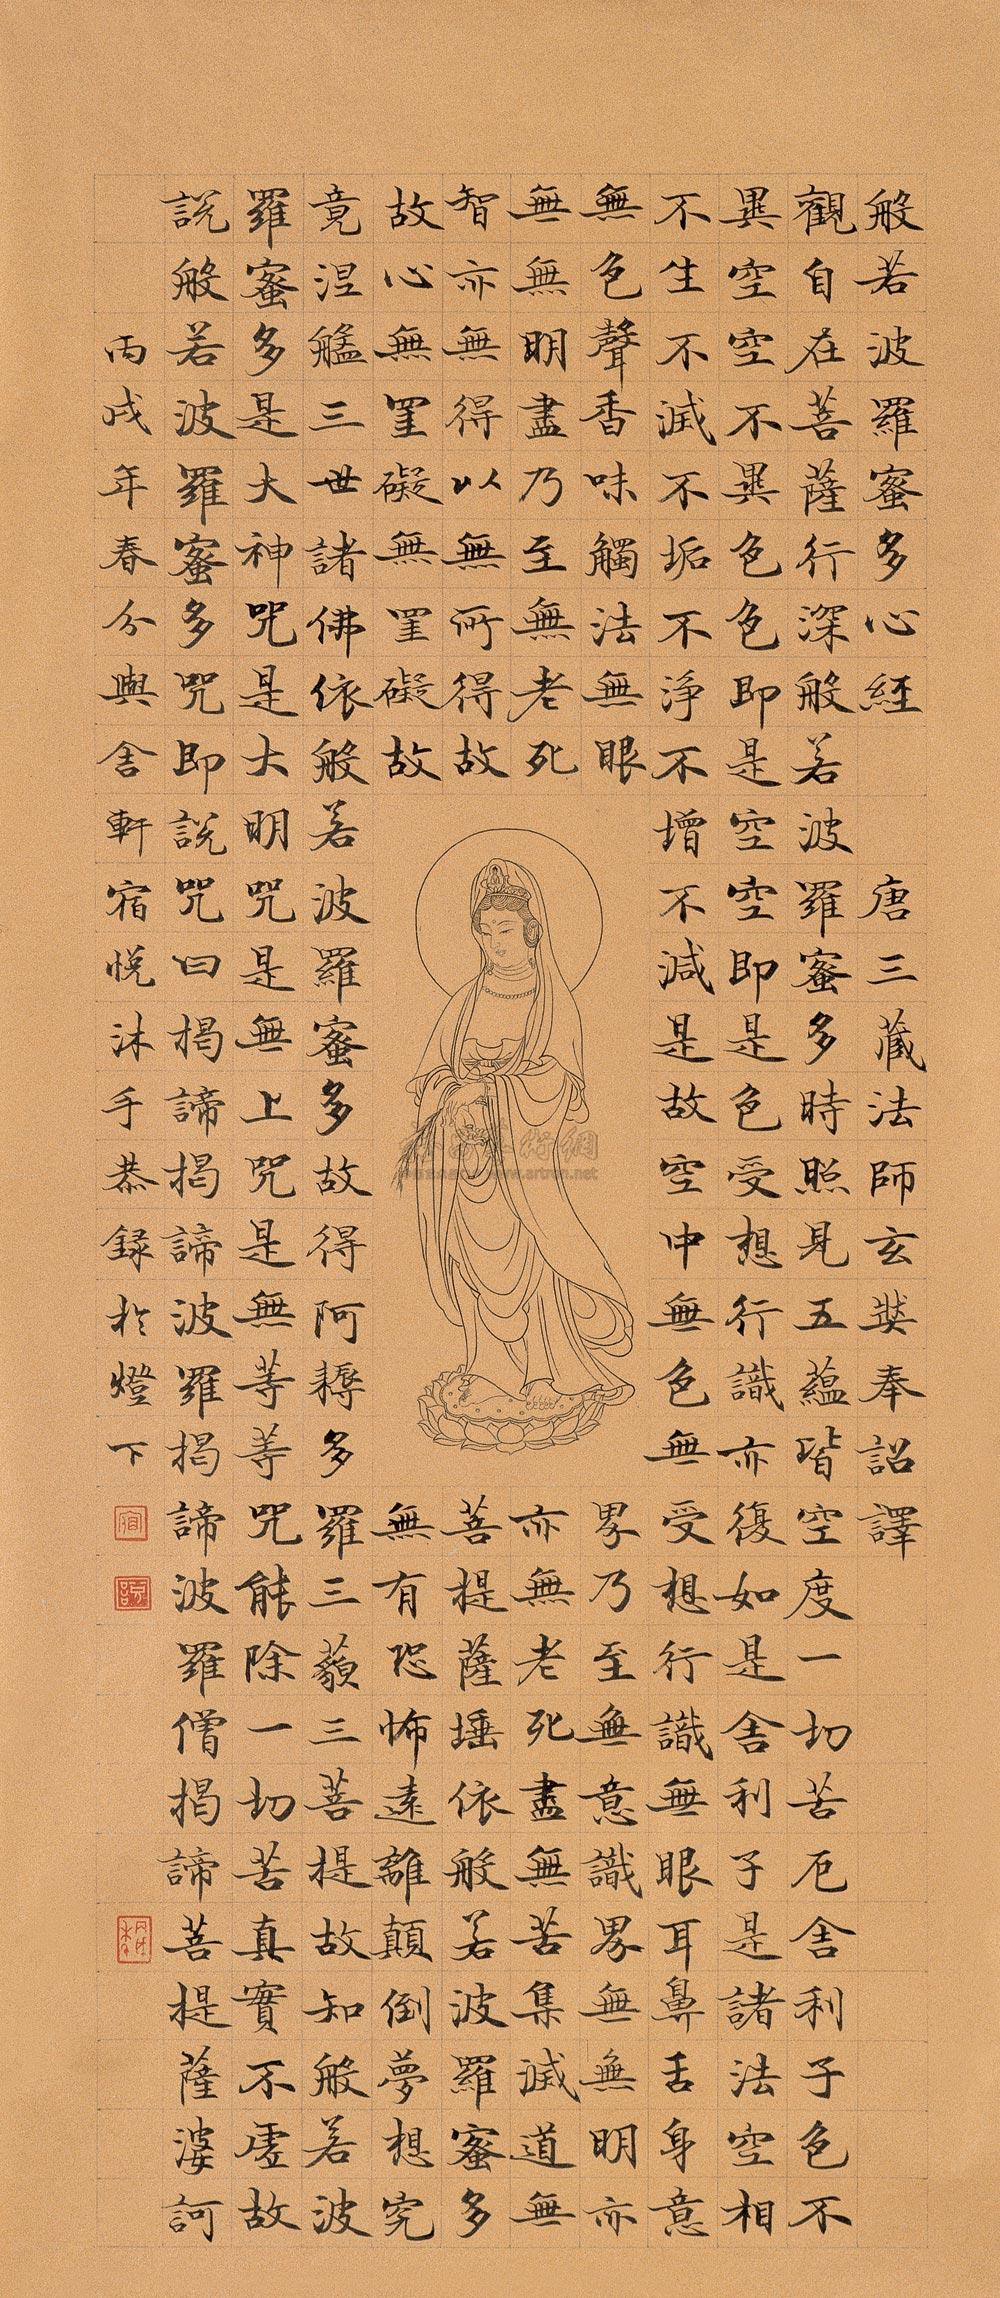 般若波羅蜜多心經 唐三藏法師玄奘奉詔譯
觀自在菩薩行深般若波羅蜜多時照見五蘊皆空度一切苦厄舍利子色不
異空空不異色色即是空空即是色受想行識亦復如是舍利子是諸法空相
不生不滅不垢不淨不增不減是故空中無色無受想行識無眼耳鼻舌身意
無色聲香味觸法無眼界乃至無意識界無無明亦
無無明盡乃至無老死亦無老死盡無苦集滅道無
智亦無得以無所得故菩提薩埵依般若波羅蜜多
故心無罣礙無罣礙故無有恐怖遠離顛倒夢想究
竟涅槃三世諸佛依般若波羅蜜多故得阿耨多羅三藐三菩提故知般若波
羅蜜多是大神咒是大明咒是無上咒是無等等咒能除一切苦真實不虛故
說般若波羅蜜多咒即說咒曰揭諦揭諦波羅揭諦波羅僧揭諦菩提薩婆訶
丙戌年春分與舍軒宿悅沐手恭錄於燈下
artron.net